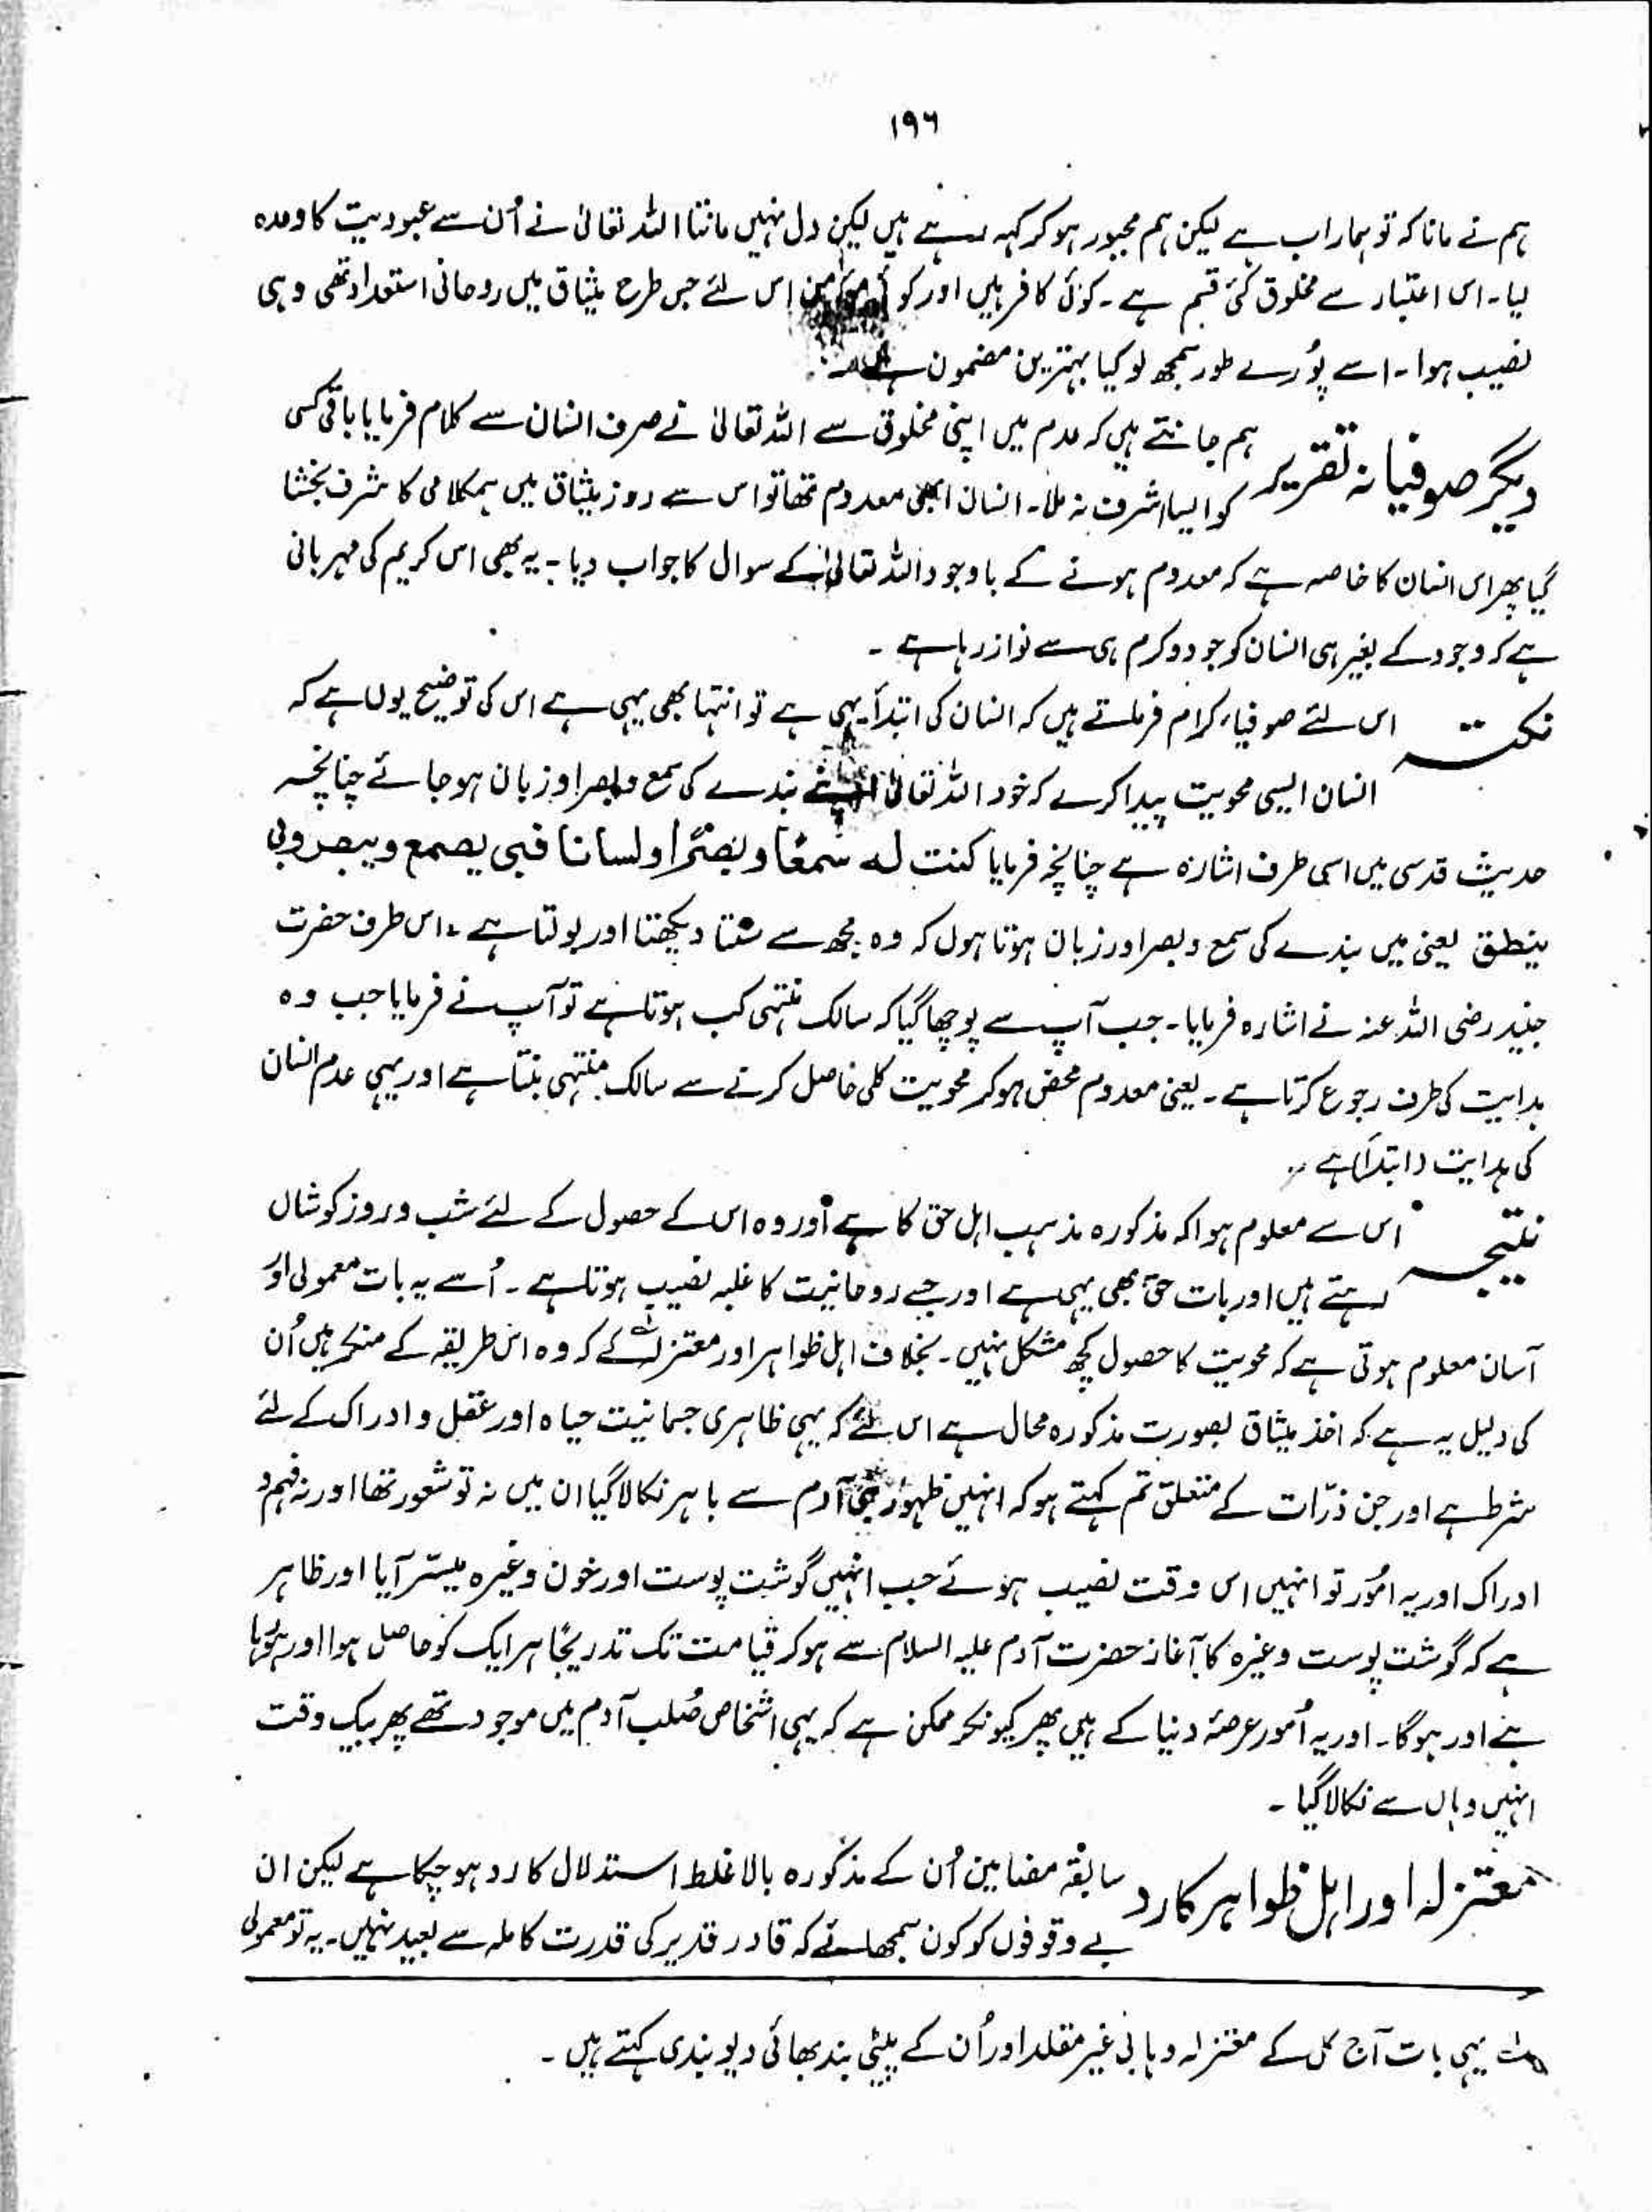 ۱۹۶
ہم نے مانا کہ تو ہمارا رب ہے لیکن ہم مجبور ہو کر کہہ رہے ہیں لیکن دل نہیں مانتا اللہ تعالیٰ نے اُن سے عبودیت کا وعدہ
لیا۔ اس اعتبار سے مخلوق کئی قسم ہے۔ کوئی کافر ہیں اور کوئی مومن اس لئے جس طرح میثاق میں روحانی استعداد تھی وہی
نصیب ہوا۔ اسے پُورے طور سمجھ لو کیا بہترین مضمون ہے۔
دیگر صوفیانہ تقریر ہم جانتے ہیں کہ عدم میں اپنی مخلوق سے اللہ تعالیٰ نے صرف انسان سے کلام فرمایا باقی کسی
کو ایسا اشرف نہ ملا۔ انسان ابھی معدوم تھا تو اس سے روز میثاق میں ہمکلامی کا شرف بخشا
گیا پھر اس انسان کا خاصہ ہے کہ معدوم ہونے کے باوجود اللہ تعالیٰ کے سوال کا جواب دیا۔ یہ بھی اس کریم کی مہربانی
ہے کہ وجود کے بغیر ہی انسان کو جود و کرم ہی سے نواز رہا ہے۔
نکتہ اس لئے صوفیاء کرام فرماتے ہیں کہ انسان کی ابتدأ یہی ہے تو انتہا بھی یہی ہے اس کی توضیح یوں ہے کہ
انسان ایسی محویت پیدا کرے کہ خود اللہ تعالیٰ اپنے بندے کی سمع و بصر اور زبان ہو جائے چنانچہ
حدیث قدسی میں اسی طرف اشارہ ہے چنانچہ فرمایا کنت لہ سَمعًا وبَصَرًا ولسانا فبی یصمع ویبصر وبی
ینطق یعنی میں بندے کی سمع و بصر اور زبان ہوتا ہوں کہ وہ مجھ سے سُنتا دیکھتا اور بولتا ہے۔ اس طرف حضرت
جنید رضی اللہ عنہ نے اشارہ فرمایا۔ جب آپ سے پوچھا گیا کہ سالک منتہی کب ہوتا ہے تو آپ نے فرمایا جب وہ
بدایت کی طرف رجوع کرتا ہے۔ یعنی معدوم محض ہو کر محویت کلی حاصل کرنے سے سالک منتہی بنتا ہے اور یہی عدم انسان
کی بدایت (ابتدأ) ہے۔
نتیجہ اس سے معلوم ہوا کہ مذکورہ مذہب اہل حق کا ہے اور وہ اس کے حصول کے لئے شب و روز کوشاں
رہتے ہیں اور بات حق بھی یہی ہے اور جسے روحانیت کا غلبہ نصیب ہوتا ہے۔ اُسے یہ بات معمولی اور
آسان معلوم ہوتی ہے کہ محویت کا حصول کچھ مشکل نہیں۔ بخلاف اہل ظواہر اور معتزلہ کے کہ وہ اس طریقہ کے منکر ہیں اُن
کی دلیل یہ ہے کہ اخذ میثاق بصورت مذکورہ محال ہے اس لئے کہ یہی ظاہری جسمانیت حیاہ اور عقل و ادراک کے لئے
شرط ہے اور جن ذرّات کے متعلق تم کہتے ہو کہ انہیں ظہور بنی آدم سے باہر نکالا گیا ان میں نہ تو شعور تھا اور نہ فہم و
ادراک اور یہ امُور تو انہیں اس وقت نصیب ہوئے جب انہیں گوشت پوست اور خون وغیرہ میسّر آیا اور ظاہر
ہے کہ گوشت پوست وغیرہ کا آغاز حضرت آدم علیہ السلام سے ہو کر قیامت تک تدریجًا ہر ایک کو حاصل ہوا اور ہورہا
ہے اور ہوگا۔ اور یہ اُمور عرصۂ دنیا کے ہیں پھر کیونکر ممکن ہے کہ یہی اشخاص صُلب آدم میں موجود تھے پھر بیک وقت
انہیں وہاں سے نکالا گیا۔
معتزلہ اور اہل ظواہر کا رد سابقہ مضامین اُن کے مذکورہ بالا غلط استدلال کا رد ہو چکا ہے لیکن ان
بے وقوفوں کو کون سمجھائے کہ قادر قدیر کی قدرت کاملہ سے بعید نہیں۔ یہ تو معمولی
یہی بات آج کل کے معتزلہ وہابی غیر مقلد اور اُن کے پیٹی بند بھائی دیوبندی کہتے ہیں۔